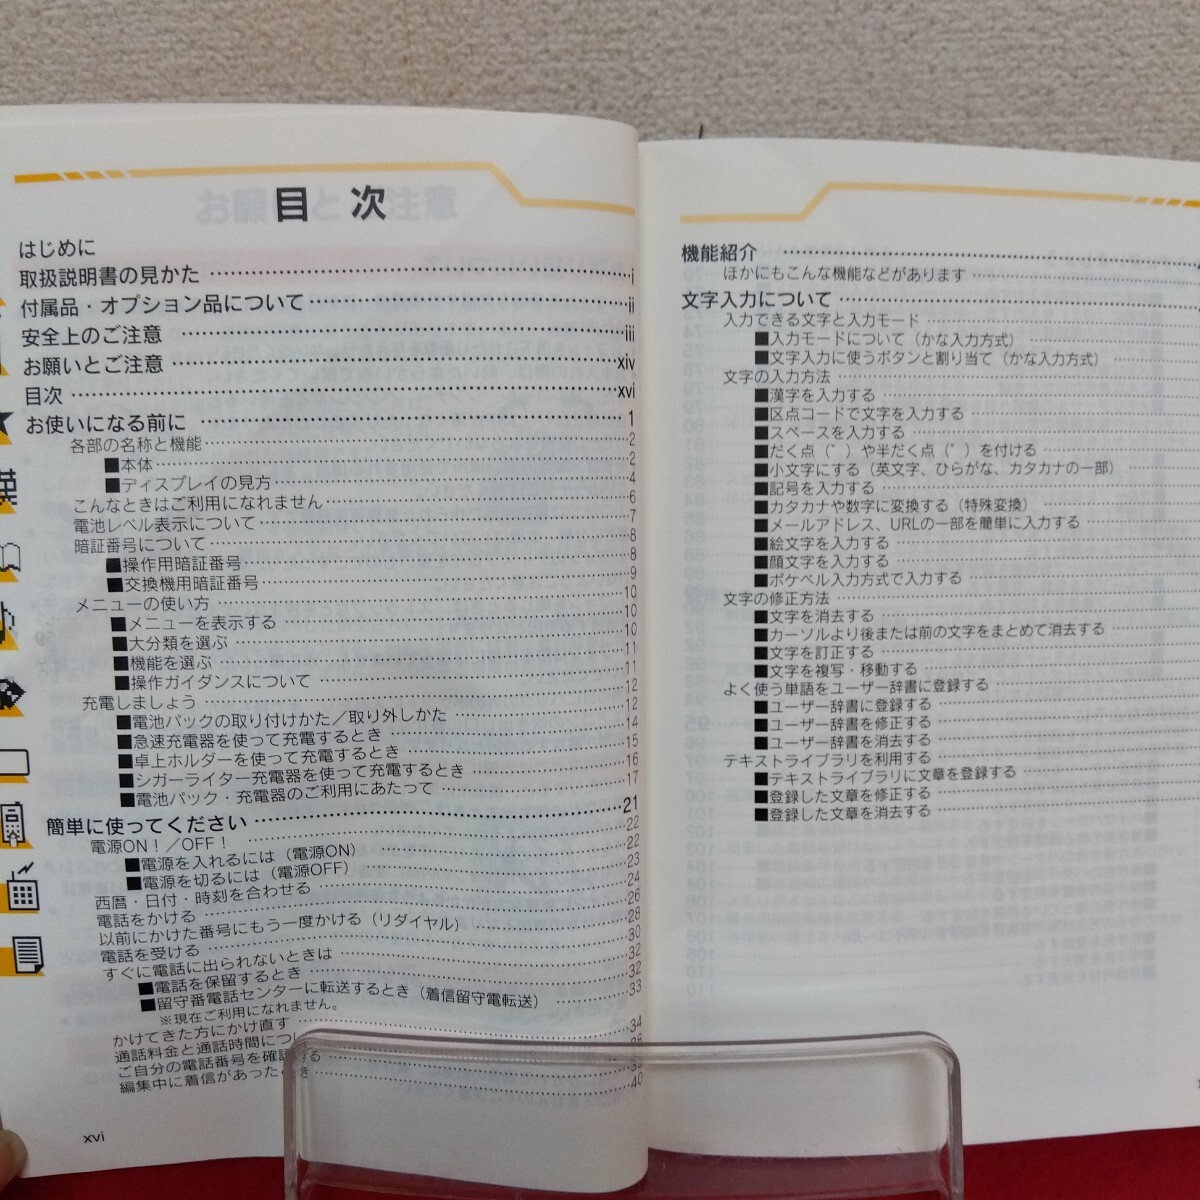 目次
はじめに
取扱説明書の見かた i
付属品・オプション品について ii
安全上のご注意 iii
お願いとご注意 xiv
目次 xvi
お使いになる前に 1
各部の名称と機能 2
■本体 2
■ディスプレイの見方 4
こんなときはご利用になれません 6
電池レベル表示について 7
暗証番号について 8
■操作用暗証番号 8
■交換機用暗証番号 9
メニューの使い方 10
■メニューを表示する 10
■大分類を選ぶ 10
■機能を選ぶ 11
■操作ガイダンスについて 11
充電しましょう 12
■電池パックの取り付けかた／取り外しかた 12
■急速充電器を使って充電するとき 14
■卓上ホルダーを使って充電するとき 15
■シガーライター充電器を使って充電するとき 16
■電池パック・充電器のご利用にあたって 17
簡単に使ってください 21
電源ON！／OFF！ 22
■電源を入れるには（電源ON） 22
■電源を切るには（電源OFF） 23
西暦・日付・時刻を合わせる 24
電話をかける 26
以前にかけた番号にもう一度かける（リダイヤル） 28
電話を受ける 30
すぐに電話に出られないときは 32
■電話を保留するとき 32
■留守番電話センターに転送するとき（着信留守電転送） 33
※現在ご利用になれません。
かけてきた方にかけ直す 34
通話料金と通話時間につ
ご自分の電話番号を確認する
編集中に着信があったとき 40
xvi
機能紹介
ほかにもこんな機能などがあります
文字入力について
入力できる文字と入力モード
■入力モードについて（かな入力方式）
■文字入力に使うボタンと割り当て（かな入力方式）
文字の入力方法
■漢字を入力する
■区点コードで文字を入力する
■スペースを入力する
■だく点（゛）や半だく点（゜）を付ける
■小文字にする（英文字、ひらがな、カタカナの一部）
■記号を入力する
■カタカナや数字に変換する（特殊変換）
■メールアドレス、URLの一部を簡単に入力する
■絵文字を入力する
■顔文字を入力する
■ポケベル入力方式で入力する
文字の修正方法
■文字を消去する
■カーソルより後または前の文字をまとめて消去する
■文字を訂正する
■文字を複写・移動する
よく使う単語をユーザー辞書に登録する
■ユーザー辞書に登録する
■ユーザー辞書を修正する
■ユーザー辞書を消去する
テキストライブラリを利用する
■テキストライブラリに文章を登録する
■登録した文章を修正する
■登録した文章を消去する